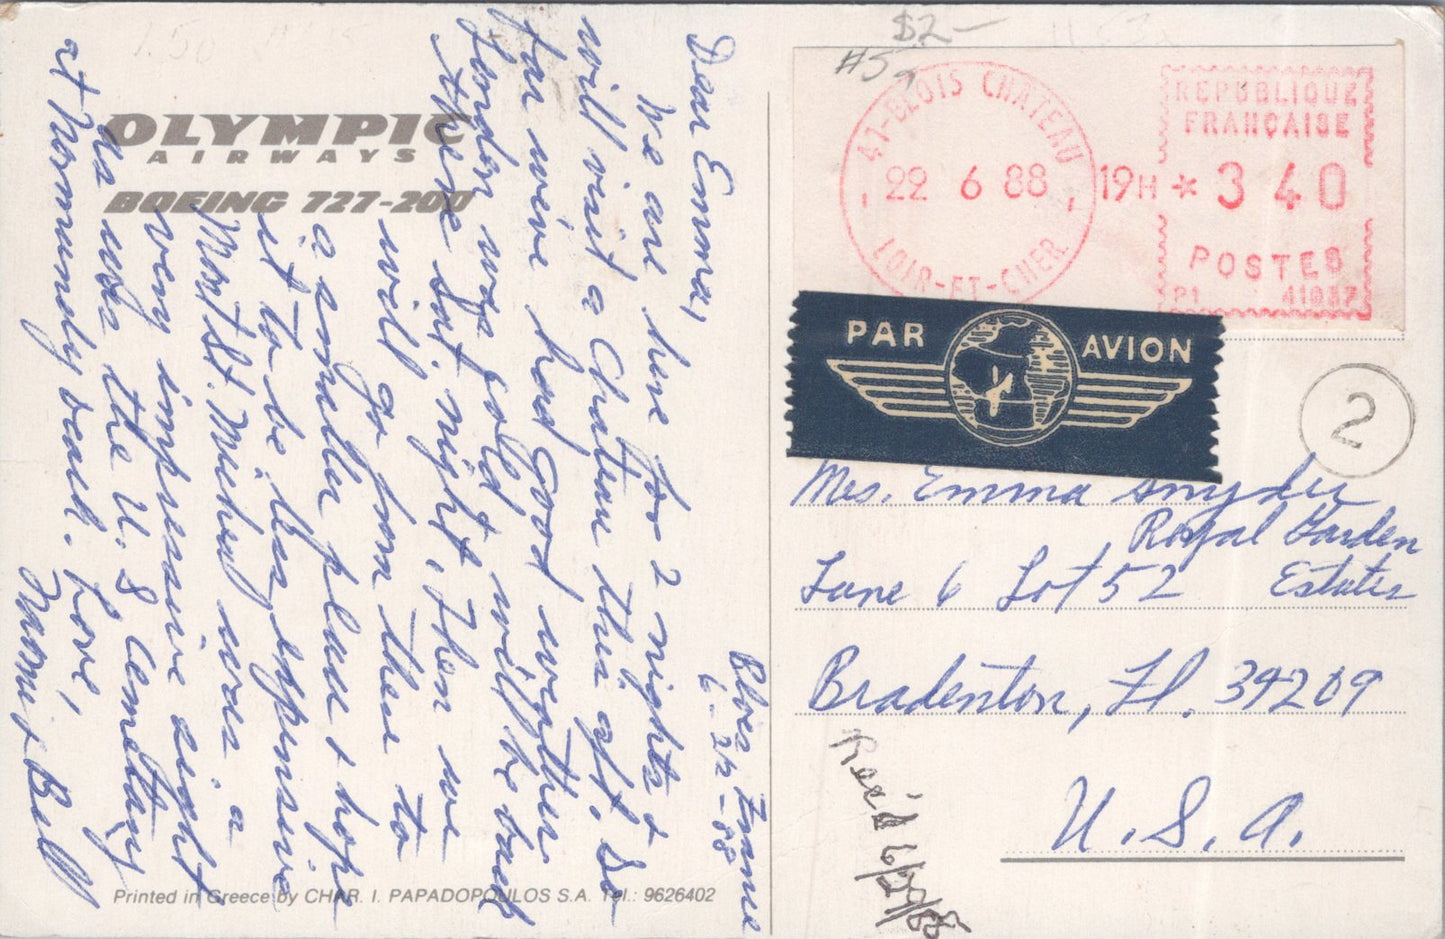 OLYMPIC
AIRWAYS
BOEING 727-200
Blois, France
6-22-88
Dear Emma,
We are here for 2 nights &
will visit a Chateau this aft. So
far we've had good weather.
London was cold, will be back
there Sat. night. Then we
will go from there to
a smaller place & hope
it to be less expensive
Mont St. Michel was a
very impressive sight
as was the U.S Cemetary
at Normandy beach.
Love,
& Bill
Printed in Greece by CHAR. I. PAPADOPOULOS S.A. Tel.: 9626402
$2-
#5
41-BLOIS CHATEAU
22 6 88
LOIR-ET-CHER
19H * 3 40
REPUBLIQUE
FRANÇAISE
POSTES
P1 41037
PAR AVION
2
Mrs. Emma Snyder
Royal Garden
Lane 6 Lot 52 Estates
Bradenton, Fl. 34209
U.S.A.
Rec'd 6/29/88